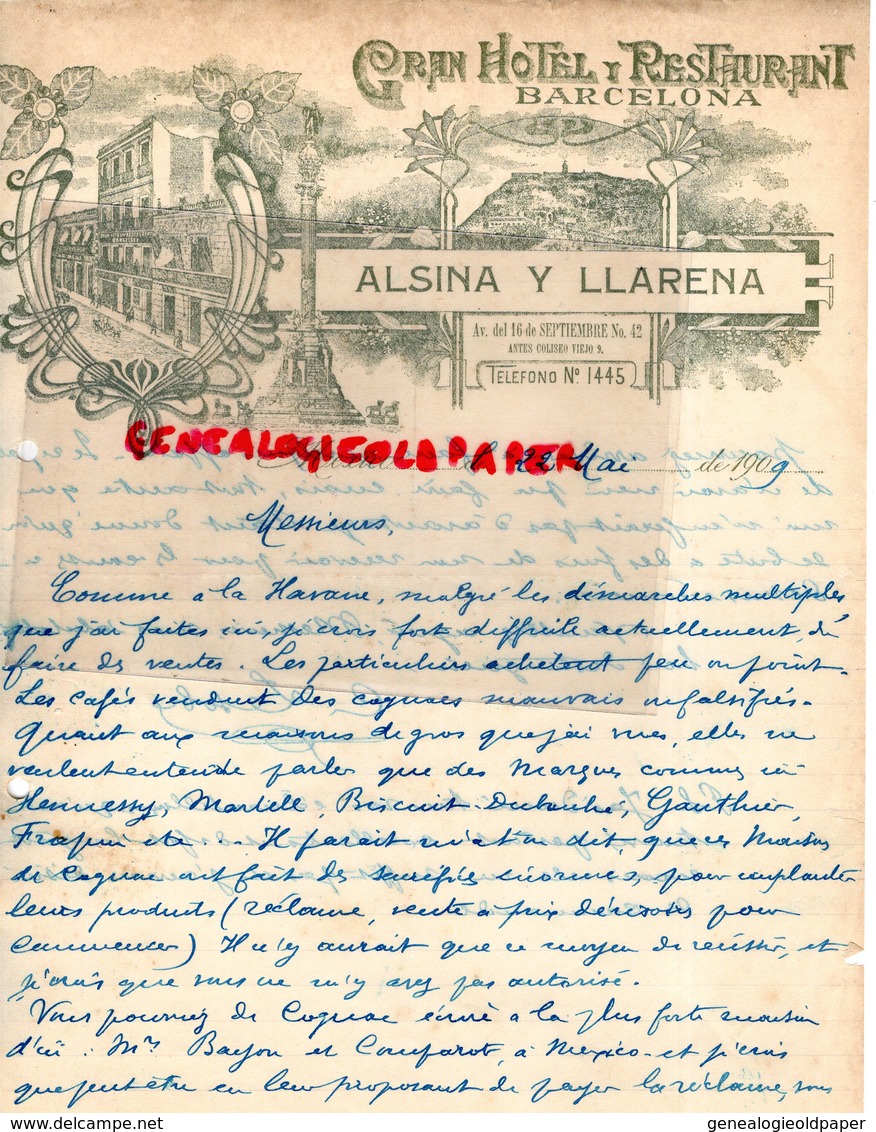 GRAN HOTEL Y RESTAURANT
BARCELONA
ALSINA Y LLARENA
Av. del 16 de SEPTIEMBRE No. 42
ANTES COLISEO VIEJO 9.
TELEFONO No. 1445
GENEALOGIEOLDPAPER
22 Mai de 1909
Messieurs,
Comme à la Havane, malgré les démarches multiples
que j'ai faites ici je crois fort difficile actuellement, de
faire des ventes. Les particuliers achètent peu ou point.
Les cafés vendent des cognacs mauvais ou falsifiés.
Quant aux maisons de gros que j'ai vues, elles ne
veulent entendre parler que des Marques connues ici
Hennessy, Martell, Biscuit Dubouché, Gauthier,
Frapin etc... Il parait m'a-t-on dit, que ces Maisons
de Cognac ont fait des sacrifices énormes, pour implanter
leurs produits (réclame, vente à prix dérisoires pour
commencer) Il n'y aurait que ce moyen de réussir, et
je crois que vous ne m'y avez pas autorisé.
Vous pourriez de Cognac écrire à la plus forte maison
d'ici : Mrs Bayon et Comparot, à Mexico - et je crois
que peut être en leur proposant de payer la réclame, vous
genealogieoldpaper